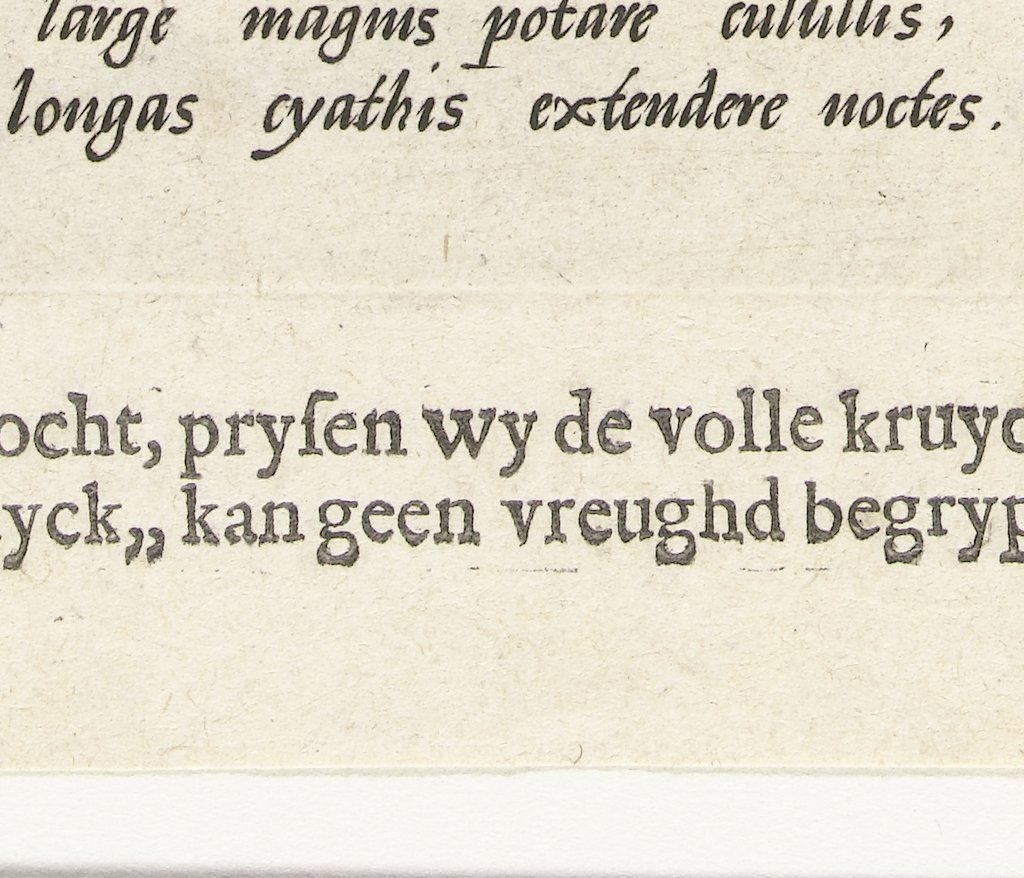 large magnis potare culullis,
longas cyathis extendere noctes.
ocht, pryſen wy de volle kruyc
yck,, kan geen vreughd begryp